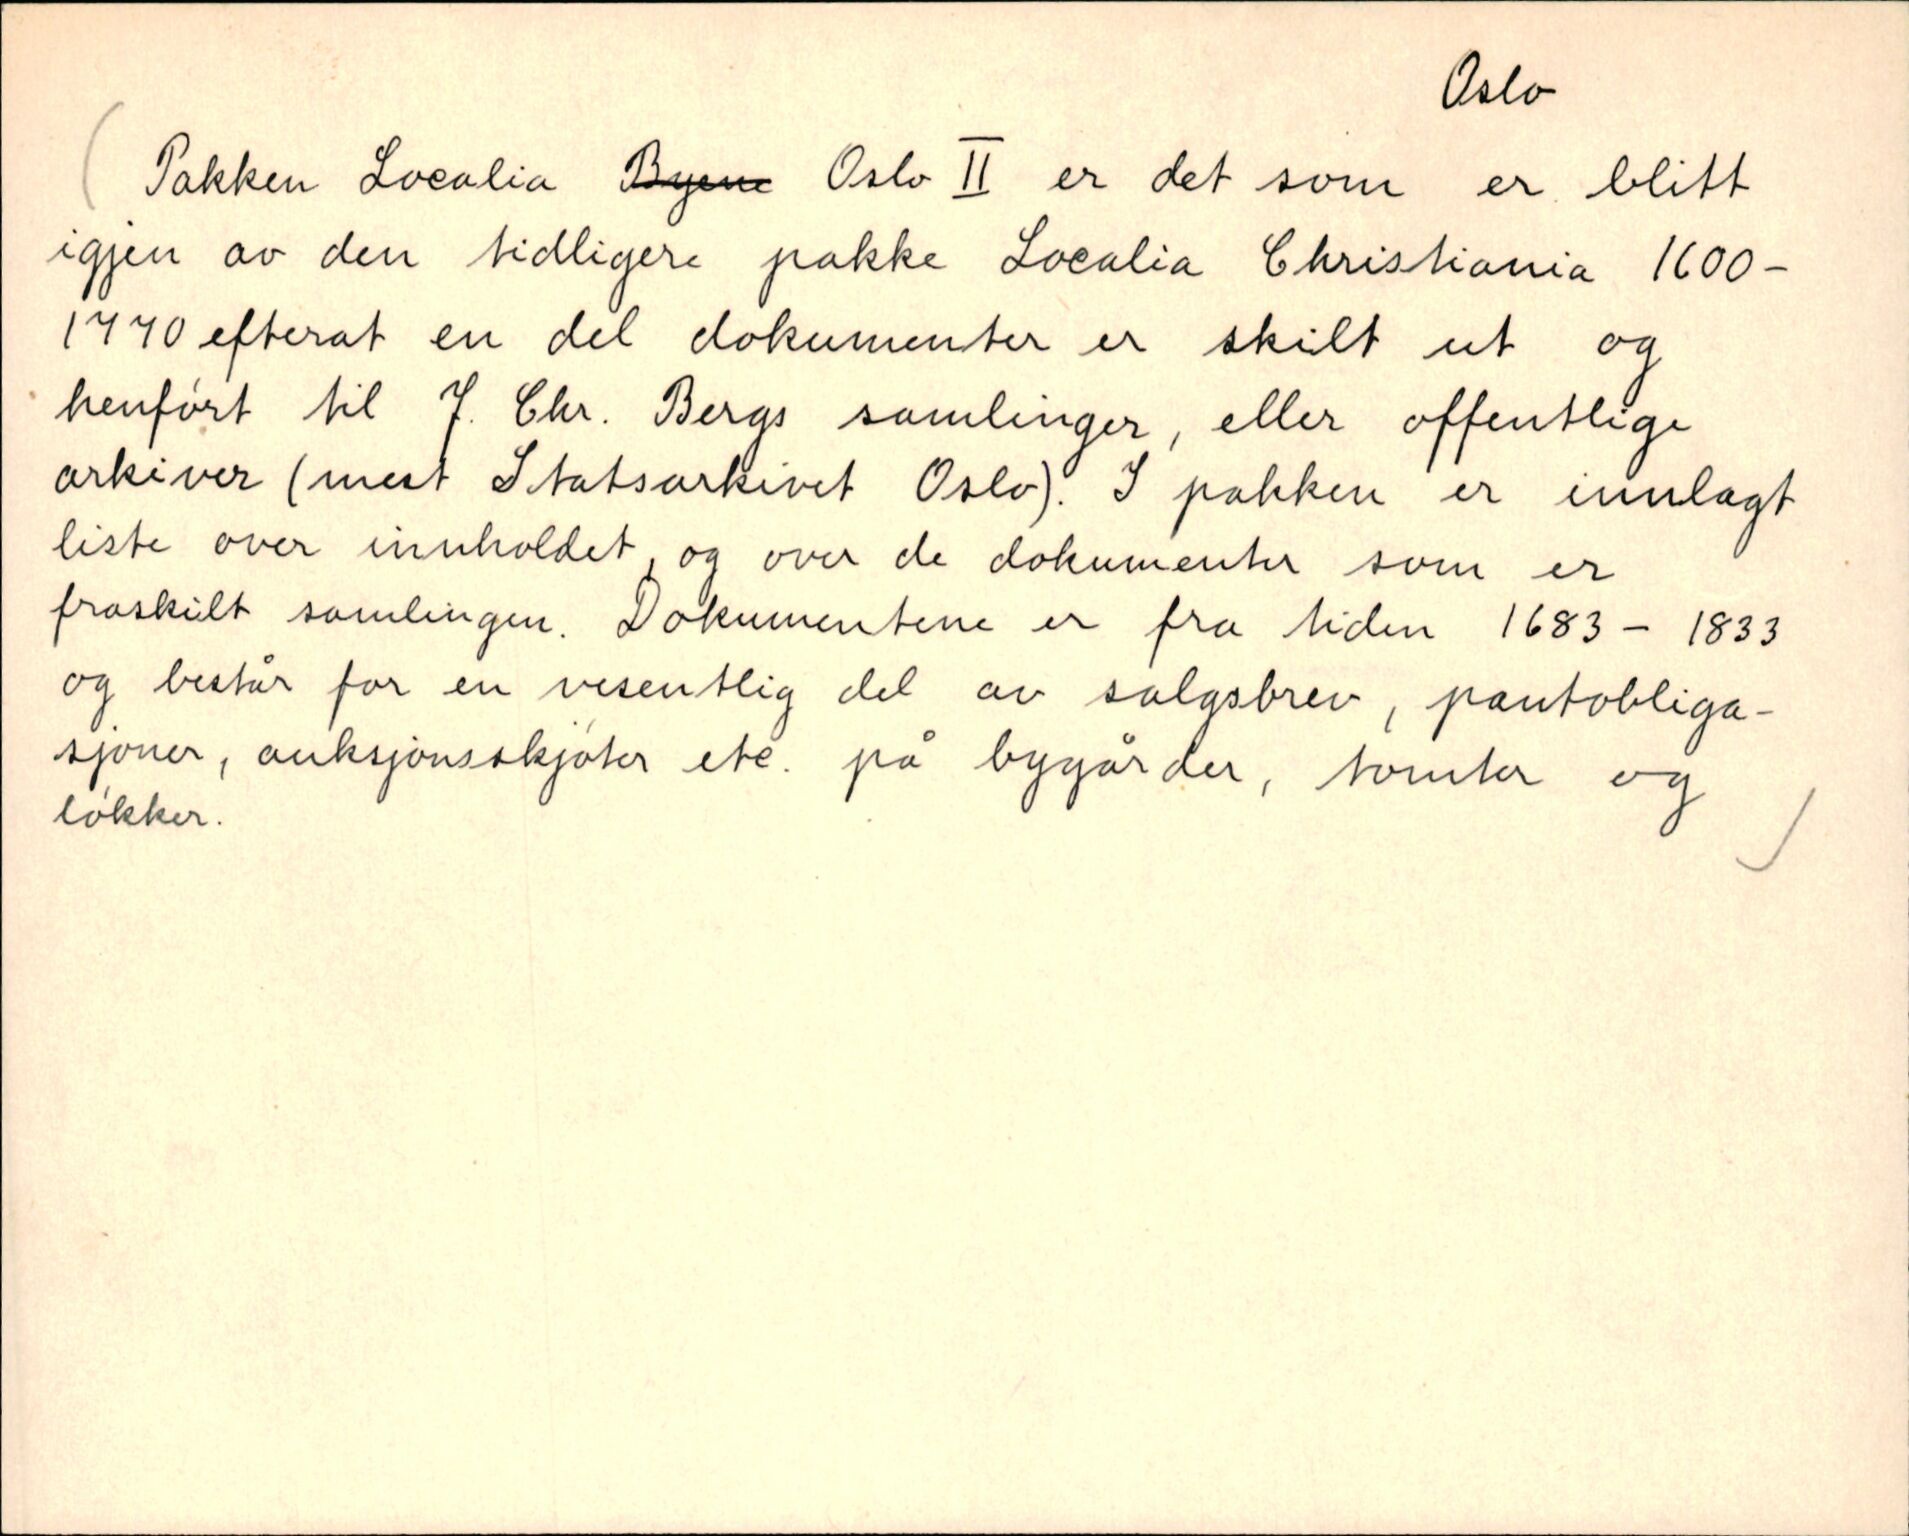 Oslo
( Pakken Localia ~~Byene~~ Oslo II er det som er blitt
igjen av den tidligere pakke Localia Christiania 1600-
1770 efterat en del dokumenter er skilt ut og
henført til J. Chr. Bergs samlinger, eller offentlige
arkiver (mest Statsarkivet Oslo). I pakken er innlagt
liste over innholdet, og over de dokumenter som er
fraskilt samlingen. Dokumentene er fra tiden 1683 - 1833
og består for en vesentlig del av salgsbrev, pantobliga-
sjoner, auksjonsskjøter etc. på bygårder, tomter og
løkker. )